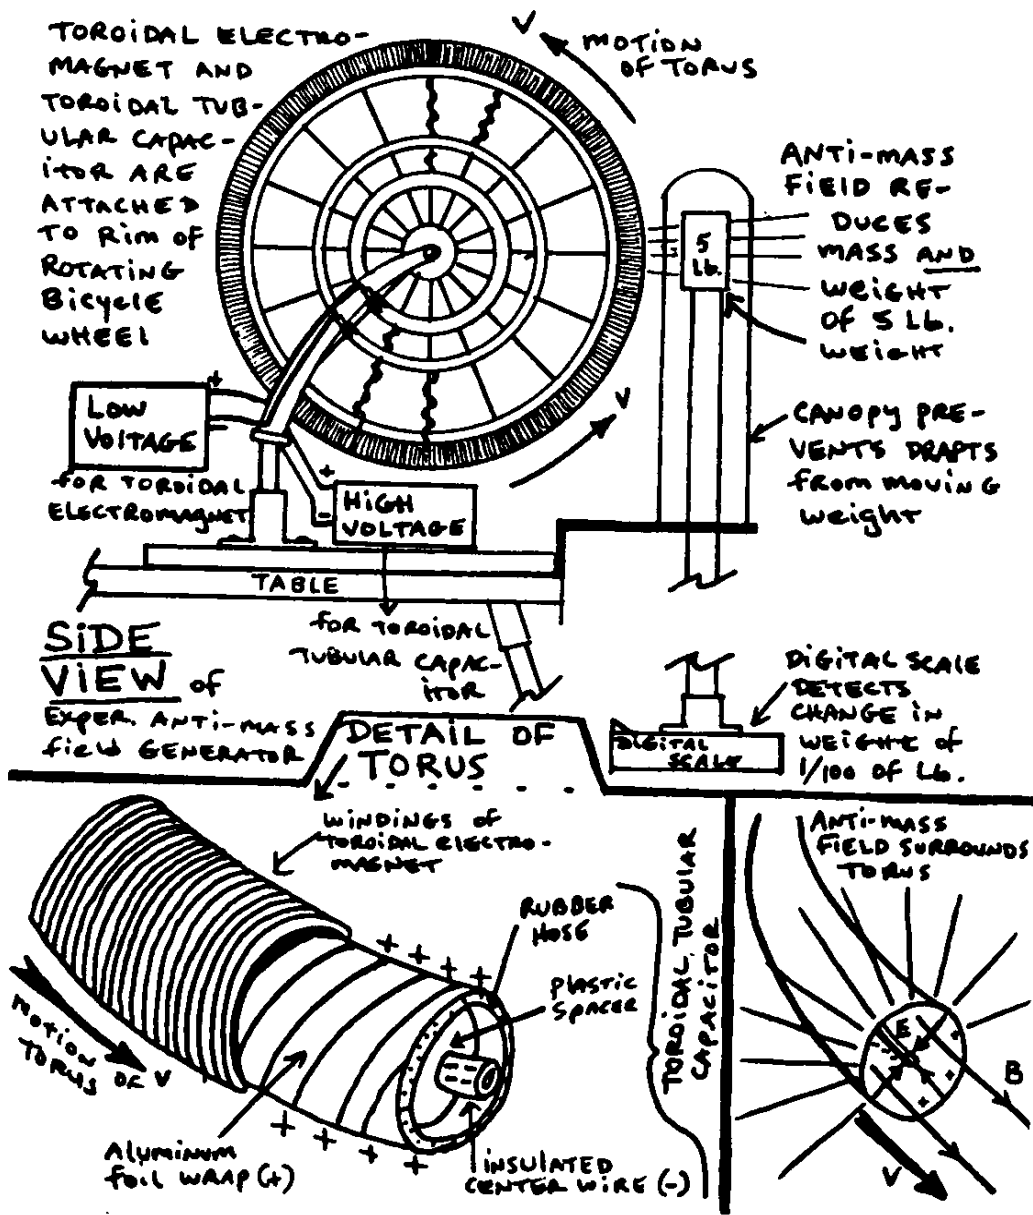 TOROIDAL ELECTRO-
MAGNET AND
TOROIDAL TUB-
ULAR CAPAC-
ITOR ARE
ATTACHED
TO RIM OF
ROTATING
BICYCLE
WHEEL
V
MOTION
OF TORUS
ANTI-MASS
FIELD RE-
DUCES
MASS AND
WEIGHT
OF 5 Lb.
WEIGHT
5
Lb.
V
CANOPY PRE-
VENTS DRAPTS
FROM MOVING
WEIGHT
+
LOW
VOLTAGE
-
FOR TOROIDAL
ELECTROMAGNET
+
-
HIGH
VOLTAGE
TABLE
FOR TOROIDAL
TUBULAR CAPAC-
ITOR
SIDE
VIEW OF
EXPER. ANTI-MASS
FIELD GENERATOR
DIGITAL SCALE
DETECTS
CHANGE IN
WEIGHT OF
1/100 OF Lb.
DIGITAL
SCALE
DETAIL OF
TORUS
WINDINGS OF
TOROIDAL ELECTRO-
MAGNET
RUBBER
HOSE
PLASTIC
SPACER
+ + + + +
MOTION
TORUS OF V
+ + + + +
ALUMINUM
FOIL WRAP (+)
INSULATED
CENTER WIRE (-)
TOROIDAL TUBULAR
CAPACITOR
ANTI-MASS
FIELD SURROUNDS
TORUS
E
B
V